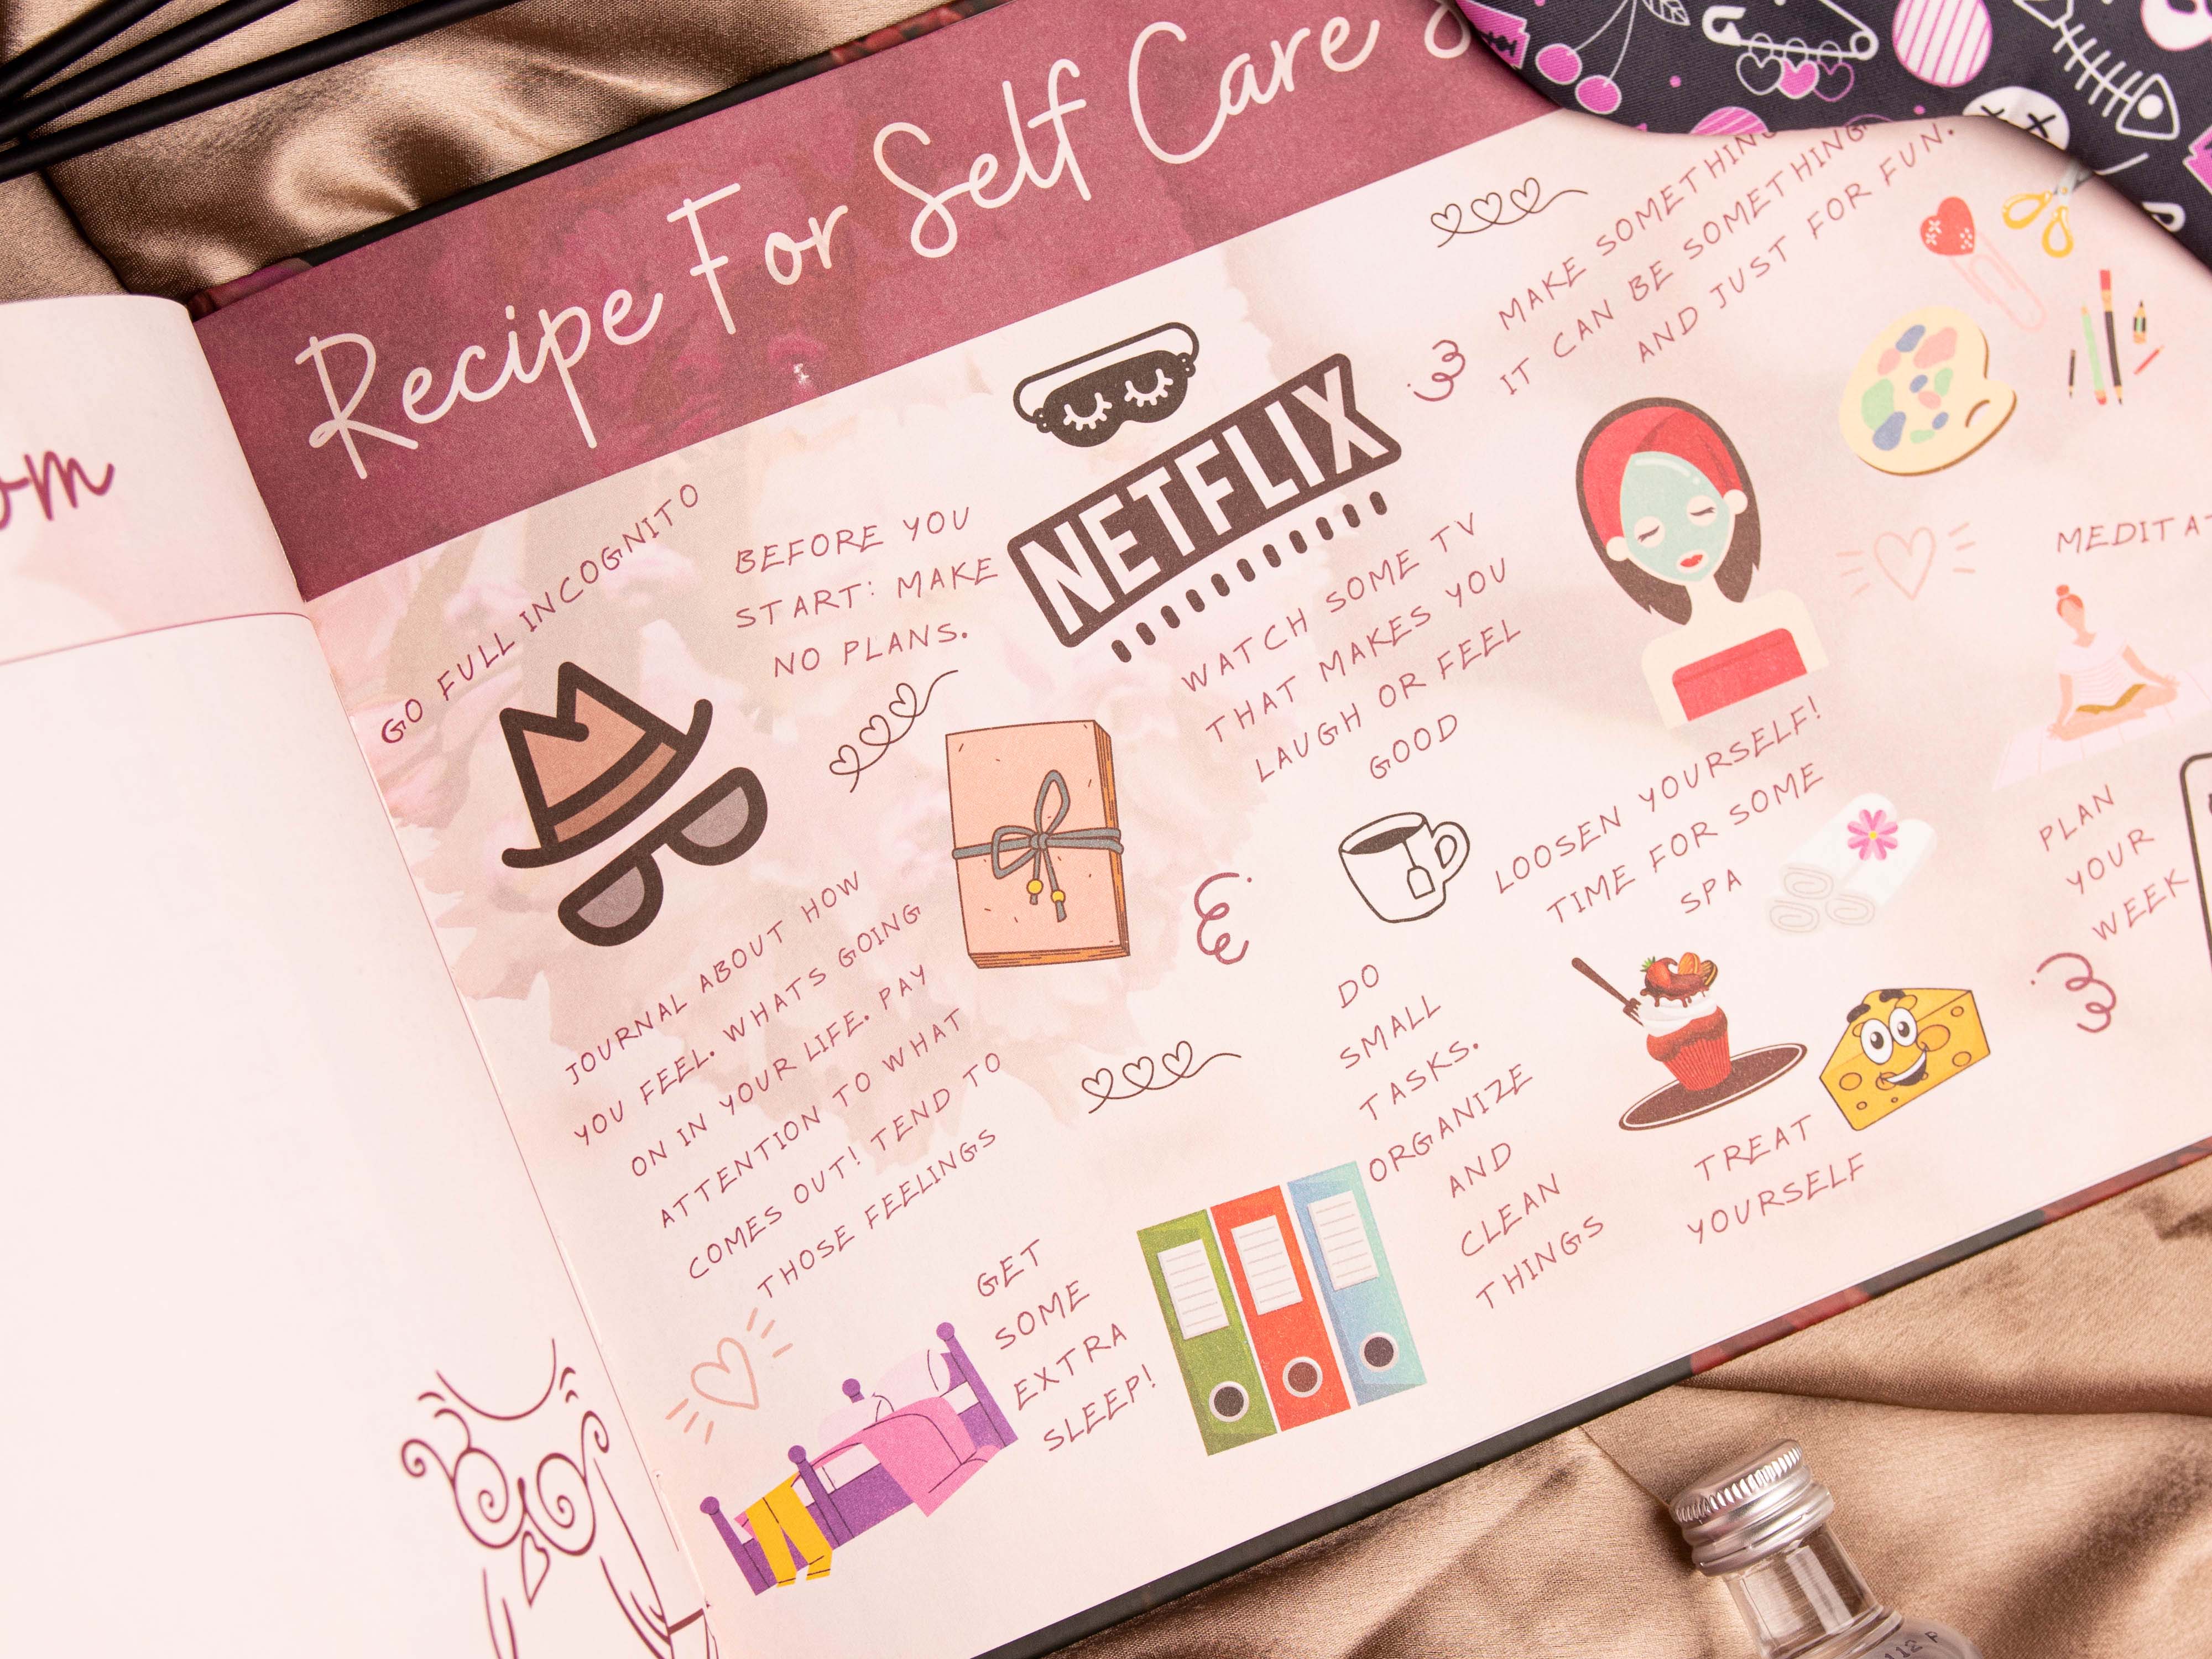 Recipe For Self Care
GO FULL INCOGNITO
BEFORE YOU
START: MAKE
NO PLANS.
NETFLIX
WATCH SOME TV
THAT MAKES YOU
LAUGH OR FEEL
GOOD
MAKE SOMETHING
IT CAN BE SOMETHING
AND JUST FOR FUN.
JOURNAL ABOUT HOW
YOU FEEL. WHATS GOING
ON IN YOUR LIFE. PAY
ATTENTION TO WHAT
COMES OUT! TEND TO
THOSE FEELINGS
LOOSEN YOURSELF!
TIME FOR SOME
SPA
MEDITA
PLAN
YOUR
WEEK
GET
SOME
EXTRA
SLEEP!
DO
SMALL
TASKS.
ORGANIZE
AND
CLEAN
THINGS
TREAT
YOURSELF
om
112 P